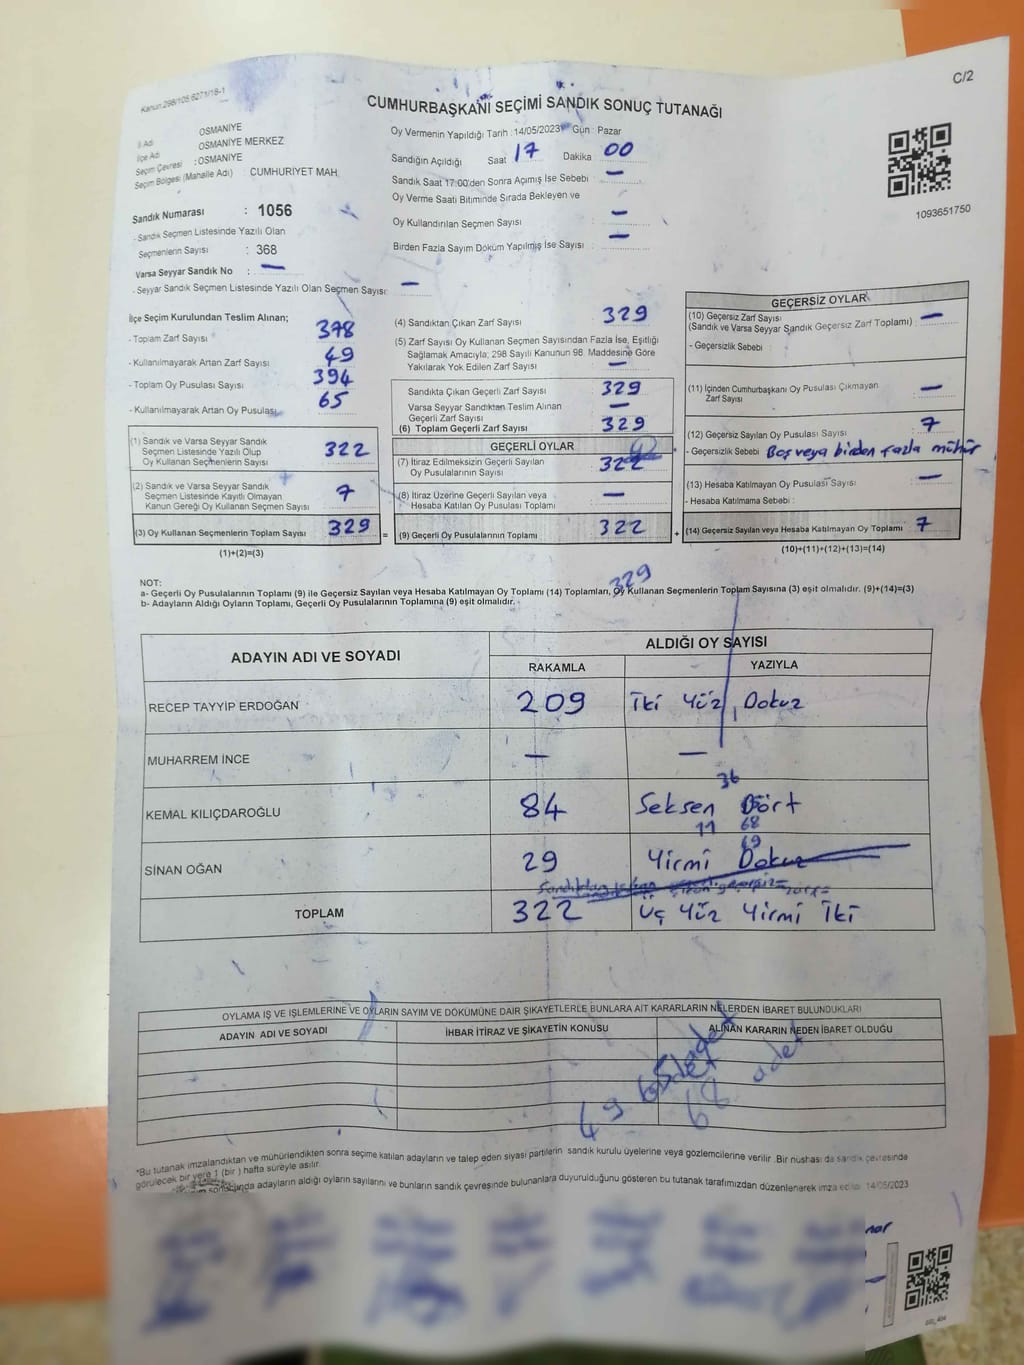 Kanun 298/105 6271/18-1
C/2
CUMHURBAŞKANI SEÇİMİ SANDIK SONUÇ TUTANAĞI
İl Adı OSMANİYE
İlçe Adı OSMANİYE MERKEZ
Seçim Çevresi : OSMANİYE
Seçim Bölgesi (Mahalle Adı) CUMHURİYET MAH.
Sandık Numarası : 1056
- Sandık Seçmen Listesinde Yazılı Olan
Seçmenlerin Sayısı : 368
Varsa Seyyar Sandık No : —
- Seyyar Sandık Seçmen Listesinde Yazılı Olan Seçmen Sayısı: —
Oy Vermenin Yapıldığı Tarih : 14/05/2023 Gün : Pazar
Sandığın Açıldığı Saat 17 Dakika 00
Sandık Saat 17:00'den Sonra Açımış İse Sebebi : —
Oy Verme Saati Bitiminde Sırada Bekleyen ve
Oy Kullandırılan Seçmen Sayısı : —
Birden Fazla Sayım Döküm Yapılmış İse Sayısı : —
1093651750
İlçe Seçim Kurulundan Teslim Alınan;
- Toplam Zarf Sayısı 378
- Kullanılmayarak Artan Zarf Sayısı 49
- Toplam Oy Pusulası Sayısı 394
- Kullanılmayarak Artan Oy Pusulası 65
(1) Sandık ve Varsa Seyyar Sandık
Seçmen Listesinde Yazılı Olup
Oy Kullanan Seçmenlerin Sayısı 322
(2) Sandık ve Varsa Seyyar Sandık
Seçmen Listesinde Kayıtlı Olmayan
Kanun Gereği Oy Kullanan Seçmen Sayısı 7
(3) Oy Kullanan Seçmenlerin Toplam Sayısı 329 =
(1)+(2)=(3)
(4) Sandıktan Çıkan Zarf Sayısı 329
(5) Zarf Sayısı Oy Kullanan Seçmen Sayısından Fazla İse, Eşitliği
Sağlamak Amacıyla, 298 Sayılı Kanunun 98. Maddesine Göre
Yakılarak Yok Edilen Zarf Sayısı —
Sandıkta Çıkan Geçerli Zarf Sayısı 329
Varsa Seyyar Sandıktan Teslim Alınan
Geçerli Zarf Sayısı —
(6) Toplam Geçerli Zarf Sayısı 329
GEÇERLİ OYLAR
(7) İtiraz Edilmeksizin Geçerli Sayılan
Oy Pusulalarının Sayısı 322
(8) İtiraz Üzerine Geçerli Sayılan veya
Hesaba Katılan Oy Pusulası Toplamı —
(9) Geçerli Oy Pusulalarının Toplamı 322 +
GEÇERSİZ OYLAR
(10) Geçersiz Zarf Sayısı
(Sandık ve Varsa Seyyar Sandık Geçersiz Zarf Toplamı) : —
- Geçersizlik Sebebi :
(11) İçinden Cumhurbaşkanı Oy Pusulası Çıkmayan
Zarf Sayısı —
(12) Geçersiz Sayılan Oy Pusulası Sayısı 7
- Geçersizlik Sebebi Boş veya birden fazla mühür
(13) Hesaba Katılmayan Oy Pusulası Sayısı —
- Hesaba Katılmama Sebebi :
(14) Geçersiz Sayılan veya Hesaba Katılmayan Oy Toplamı 7
(10)+(11)+(12)+(13)=(14)
329
NOT:
a- Geçerli Oy Pusulalarının Toplamı (9) ile Geçersiz Sayılan veya Hesaba Katılmayan Oy Toplamı (14) Toplamları, Oy Kullanan Seçmenlerin Toplam Sayısına (3) eşit olmalıdır. (9)+(14)=(3)
b- Adayların Aldığı Oyların Toplamı, Geçerli Oy Pusulalarının Toplamına (9) eşit olmalıdır.
ADAYIN ADI VE SOYADI
ALDIĞI OY SAYISI
RAKAMLA YAZIYLA
RECEP TAYYİP ERDOĞAN 209 İki Yüz Dokuz
MUHARREM İNCE — —
36
KEMAL KILIÇDAROĞLU 84 Seksen Dört
11 68
69
SİNAN OĞAN 29 Yirmi Dokuz
TOPLAM 322 Üç Yüz Yirmi İki
OYLAMA İŞ VE İŞLEMLERİNE VE OYLARIN SAYIM VE DÖKÜMÜNE DAİR ŞİKAYETLERLE BUNLARA AİT KARARLARIN NELERDEN İBARET BULUNDUKLARI
ADAYIN ADI VE SOYADI İHBAR İTİRAZ VE ŞİKAYETİN KONUSU ALINAN KARARIN NEDEN İBARET OLDUĞU
49
65 adet
68 adet
*Bu tutanak imzalandıktan ve mühürlendikten sonra seçime katılan adayların ve talep eden siyasi partilerin sandık kurulu üyelerine veya gözlemcilerine verilir. Bir nüshası da sandık çevresinde
görülecek bir yere 1 (bir ) hafta süreyle asılır.
sonucunda adayların aldığı oyların sayılarını ve bunların sandık çevresinde bulunanlara duyurulduğunu gösteren bu tutanak tarafımızdan düzenlenerek imza edildi. 14/05/2023